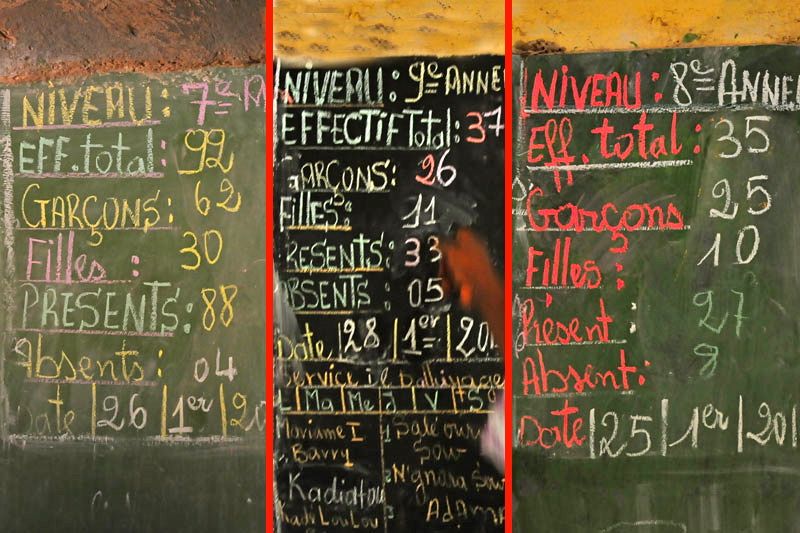 NIVEAU: 7e A
EFF. total: 92
GARÇONS: 62
Filles: 30
PRESENTS: 88
Absents: 04
Date |26 |1er |20
NIVEAU: 9e ANNE
EFFECTIF Total: 37
GARÇONS: 26
FILLES: 11
RESENTS: 33
ABSENTS: 05
Date |28 |1er |201
Service de balluyage
L | Ma | Me | J | V + S
Mariame I
Barry Sow
N'gnara Sow
Kadiatou
Adama
Kadi LouLou
NIVEAU: 8e ANNE
Eff. total: 35
Garçons 25
Filles: 10
Présent: 27
Absent: 8
Date |25 |1er |201